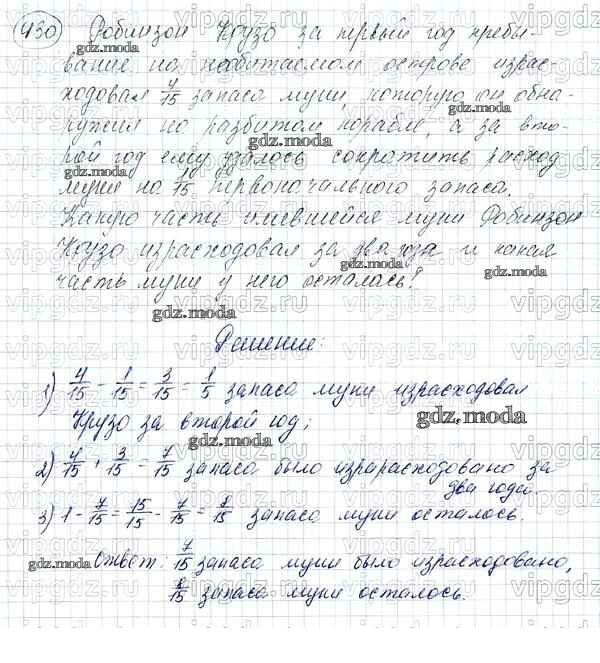 430 Робинзон Крузо за первый год пребы-
вание на необитаемом острове израс-
ходовал 4/15 запаса муки, которую он обна-
ружил на разбитом корабле, а за вто-
рой год ему удалось сократить расход
муки на 1/15 первоначального запаса.
Какую часть имевшейся муки Робинзон
Крузо израсходовал за два года и какая
часть муки у него осталась?
Решение:
1) 4/15 - 1/15 = 3/15 = 1/5 запаса муки израсходовал
Крузо за второй год;
2) 4/15 + 3/15 = 7/15 запаса было израрасходовано за
два года.
3) 1 - 7/15 = 15/15 - 7/15 = 8/15 запаса муки осталось.
Ответ: 7/15 запаса муки было израсходовано,
8/15 запаса муки осталось.
gdz.moda
vipgdz.ru